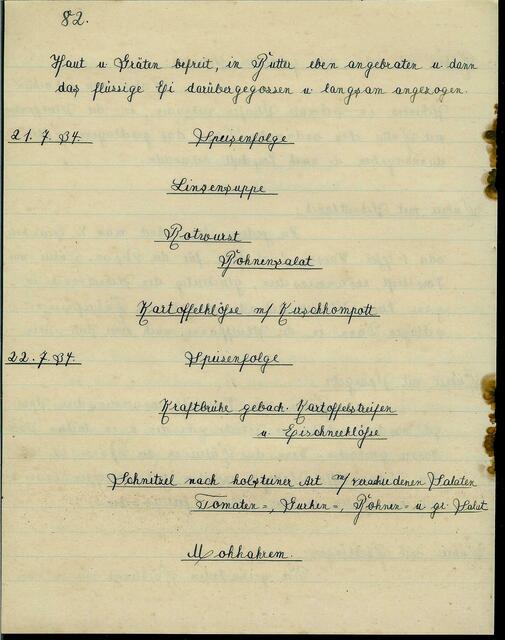 82.
Haut u Gräten befreit, in Butter eben angebraten u. dann
das flüssige Ei darübergegossen u. langsam angezogen.
21. 7. 34. Speisenfolge
Linsensuppe
Rotwurst
Bohnensalat
Kartoffelklöße m/ Kirschkompott
22. 7. 34. Speisenfolge
Kraftbrühe gebach. Kartoffelstreifen
u Eischneeklöße
Schnitzel nach holsteiner Art m/ verschiedenen Salaten
Tomaten=, Gurken=, Bohnen= u gr. Salat
Mokkakrem.